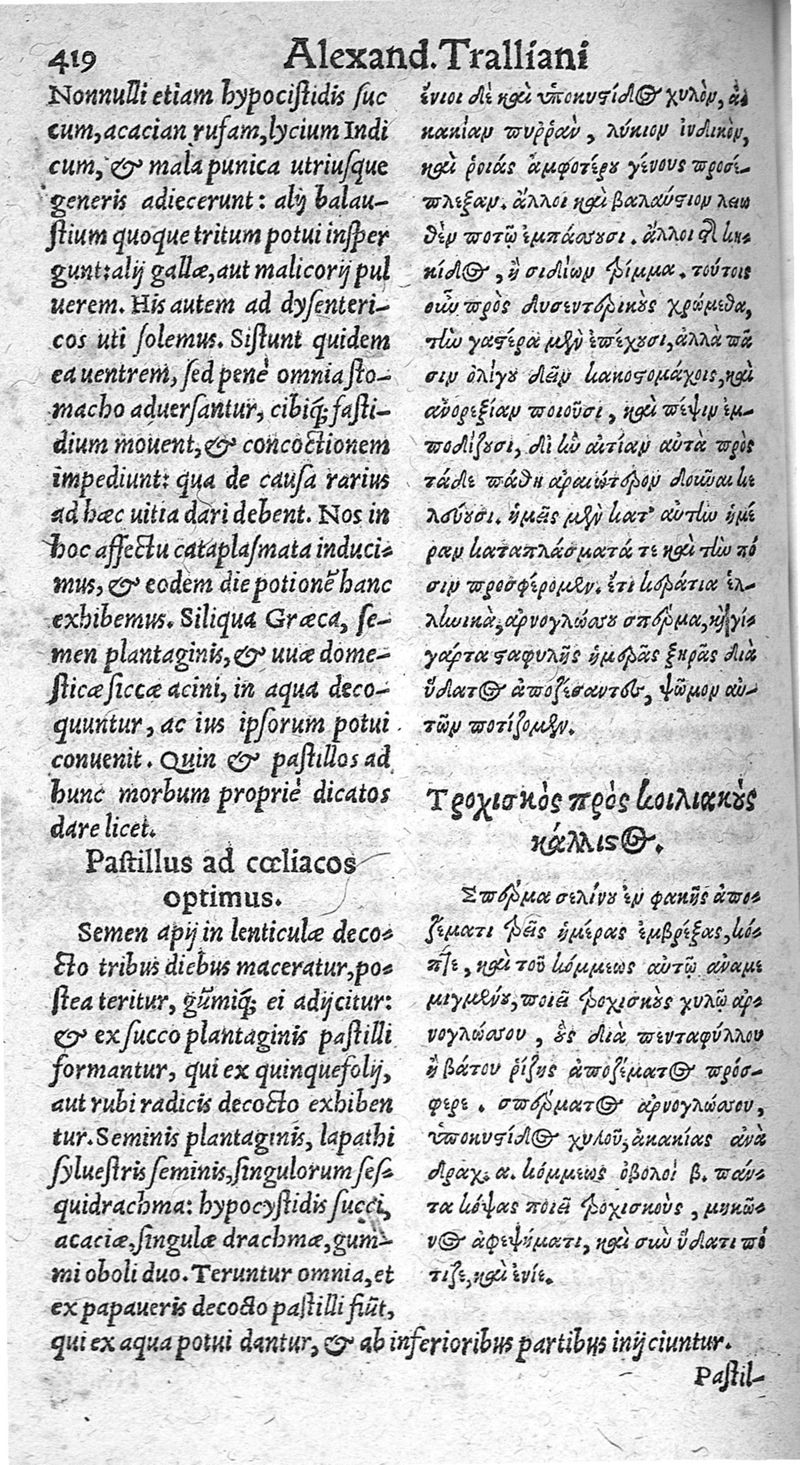 419 Alexand. Tralliani
Nonnulli etiam hypocistidis suc
cum, acacian rufam, lycium Indi
cum, & mala punica utriusque
generis adiecerunt: alij balau-
stium quoque tritum potui insper
gunt: alij gallæ, aut malicorij pul
uerem. His autem ad dysenteri-
cos uti solemus. Sistunt quidem
ea uentrem, sed penè omnia sto-
macho aduersantur, cibiq́; fasti-
dium mouent, & concoctionem
impediunt: qua de causa rarius
ad hæc uitia dari debent. Nos in
hoc affectu cataplasmata induci-
mus, & eodem die potionẽ hanc
exhibemus. Siliqua Græca, se-
men plantaginis, & uuæ dome-
sticæ siccæ acini, in aqua deco-
quuntur, ac ius ipsorum potui
conuenit. Quin & pastillos ad
hunc morbum propriè dicatos
dare licet.
Pastillus ad cœliacos
optimus.
Semen apij in lenticulæ deco-
cto tribus diebus maceratur, po-
stea teritur, gũmiq́; ei adijcitur:
& ex succo plantaginis pastilli
formantur, qui ex quinquefolij,
aut rubi radicis decocto exhiben
tur. Seminis plantaginis, lapathi
syluestris seminis, singulorum ses-
quidrachma: hypocystidis succi,
acaciæ, singulæ drachmæ, gum-
mi oboli duo. Teruntur omnia, et
ex papaueris decocto pastilli fiũt,
qui ex aqua potui dantur, & ab inferioribus partibus inijciuntur.
ἔνιοι δὲ καὶ ὑποκυστίδος χυλὸν, ἀ
κακίαν πυῤῥὰν, λύκιον ἰνδικὸν,
καὶ ῥοιάς ἀμφοτέρου γένους προσέ-
πλεξαν. ἄλλοι καὶ βαλαύστιον λειω
θὲν ποτῷ ἐμπάσσουσι. ἄλλοι δὲ κη-
κίδος, ἢ σιδίων τρίμμα. τούτοις
οὖν πρὸς δυσεντερικοὺς χρώμεθα,
τὴν γαστέρα μὲν ἐπέχουσι, ἀλλὰ πᾶ
σιν ὀλίγου δεῖν κακοστομάχοις, καὶ
ἀνορεξίαν ποιοῦσι, καὶ πέψιν ἐμ-
ποδίζουσι, δι ἣν αἰτίαν αὐτὰ πρὸς
τάδε πάθη ἀραιότερον δοῦναι κε
λεύουσι. ἡμεῖς μὲν κατ' αὐτὴν ἡμέ
ραν καταπλάσματά τε καὶ τὴν πό
σιν προσφέρομεν. ἔτι κεράτια ἑλ-
ληνικὰ, ἀρνογλώσσου σπέρμα, καὶ γί-
γαρτα σταφυλῆς ἡμερᾶς ξηρᾶς διὰ
ὕδατος ἀποζέσαντες, ζωμὸν αὐ-
τῶν ποτίζομεν.
Τροχισκὸς πρὸς κοιλιακοὺς
κάλλιστος.
Σπέρμα σελίνου ἐν φακῆς ἀπο-
ζέματι τρεῖς ἡμέρας ἐμβρέξας, κό-
πτε, καὶ τοῦ κόμμεως αὐτῷ ἀναμε
μιγμένου, ποίει τροχισκοὺς χυλῷ ἀρ-
νογλώσσου, οὓς διὰ πενταφύλλου
ἢ βάτου ῥίζης ἀποζέματος πρόσ-
φερε. σπέρματος ἀρνογλώσσου,
ὑποκυστίδος χυλοῦ, ἀκακίας ἀνὰ
δραχ. α. κόμμεως ὀβολοὶ β. πάν-
τα κόψας ποίει τροχισκοὺς, μήκω-
νος ἀφεψήματι, καὶ σὺν ὕδατι πό
τιζε, καὶ ἐνίε.
Pastil-